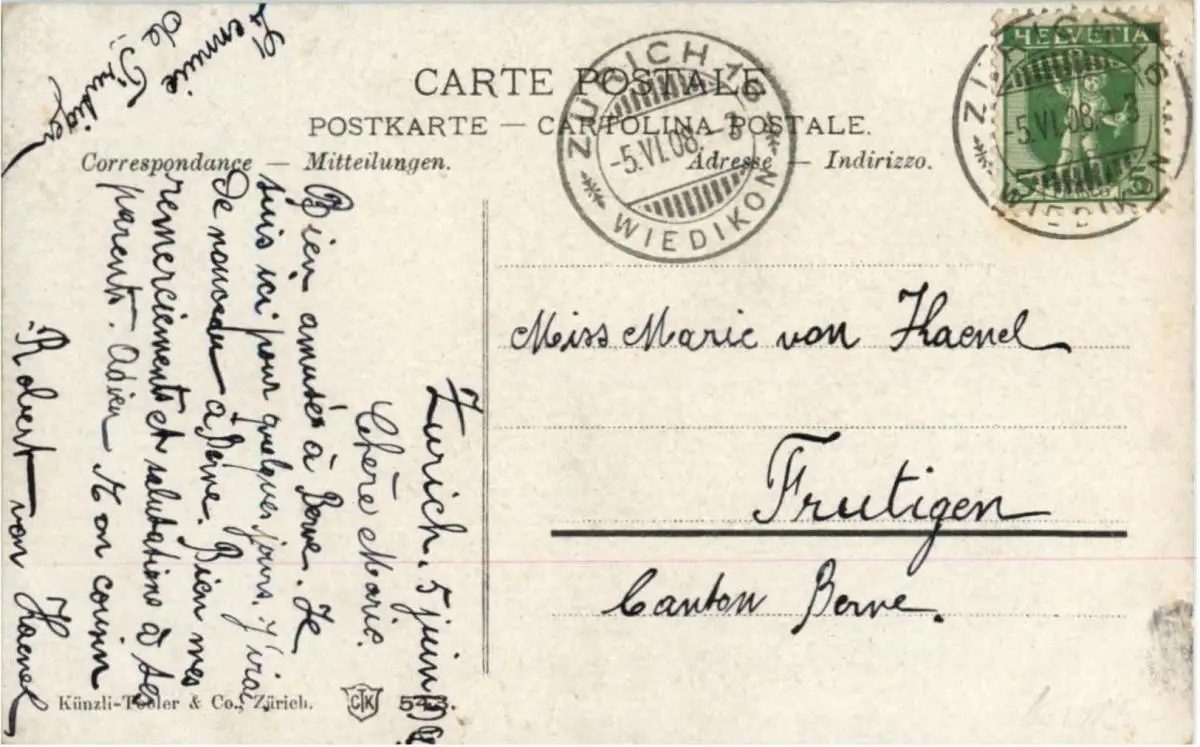 CARTE POSTALE
POSTKARTE — CARTOLINA POSTALE.
Correspondance — Mitteilungen.
Adresse — Indirizzo.
ZÜRICH 16
-5.VI.08.-3
WIEDIKON
HELVETIA
5 5
ZÜRICH 16
-5.VI.08.-3
WIEDIKON
Miss Marie von Kaenel
Frutigen
Canton Berne.
Zurich. 5 juin 08
Chère Marie.
Bien amusés à Berne. Je
suis ici pour quelques jours. J'irai
de nouveau à Berne. Bien mes
remerciements et salutations à tes
parents. Adieu Mon cousin
Robert von Kaenel
de Frutigen
Künzli-Tobler & Co., Zürich.
CTK
543.